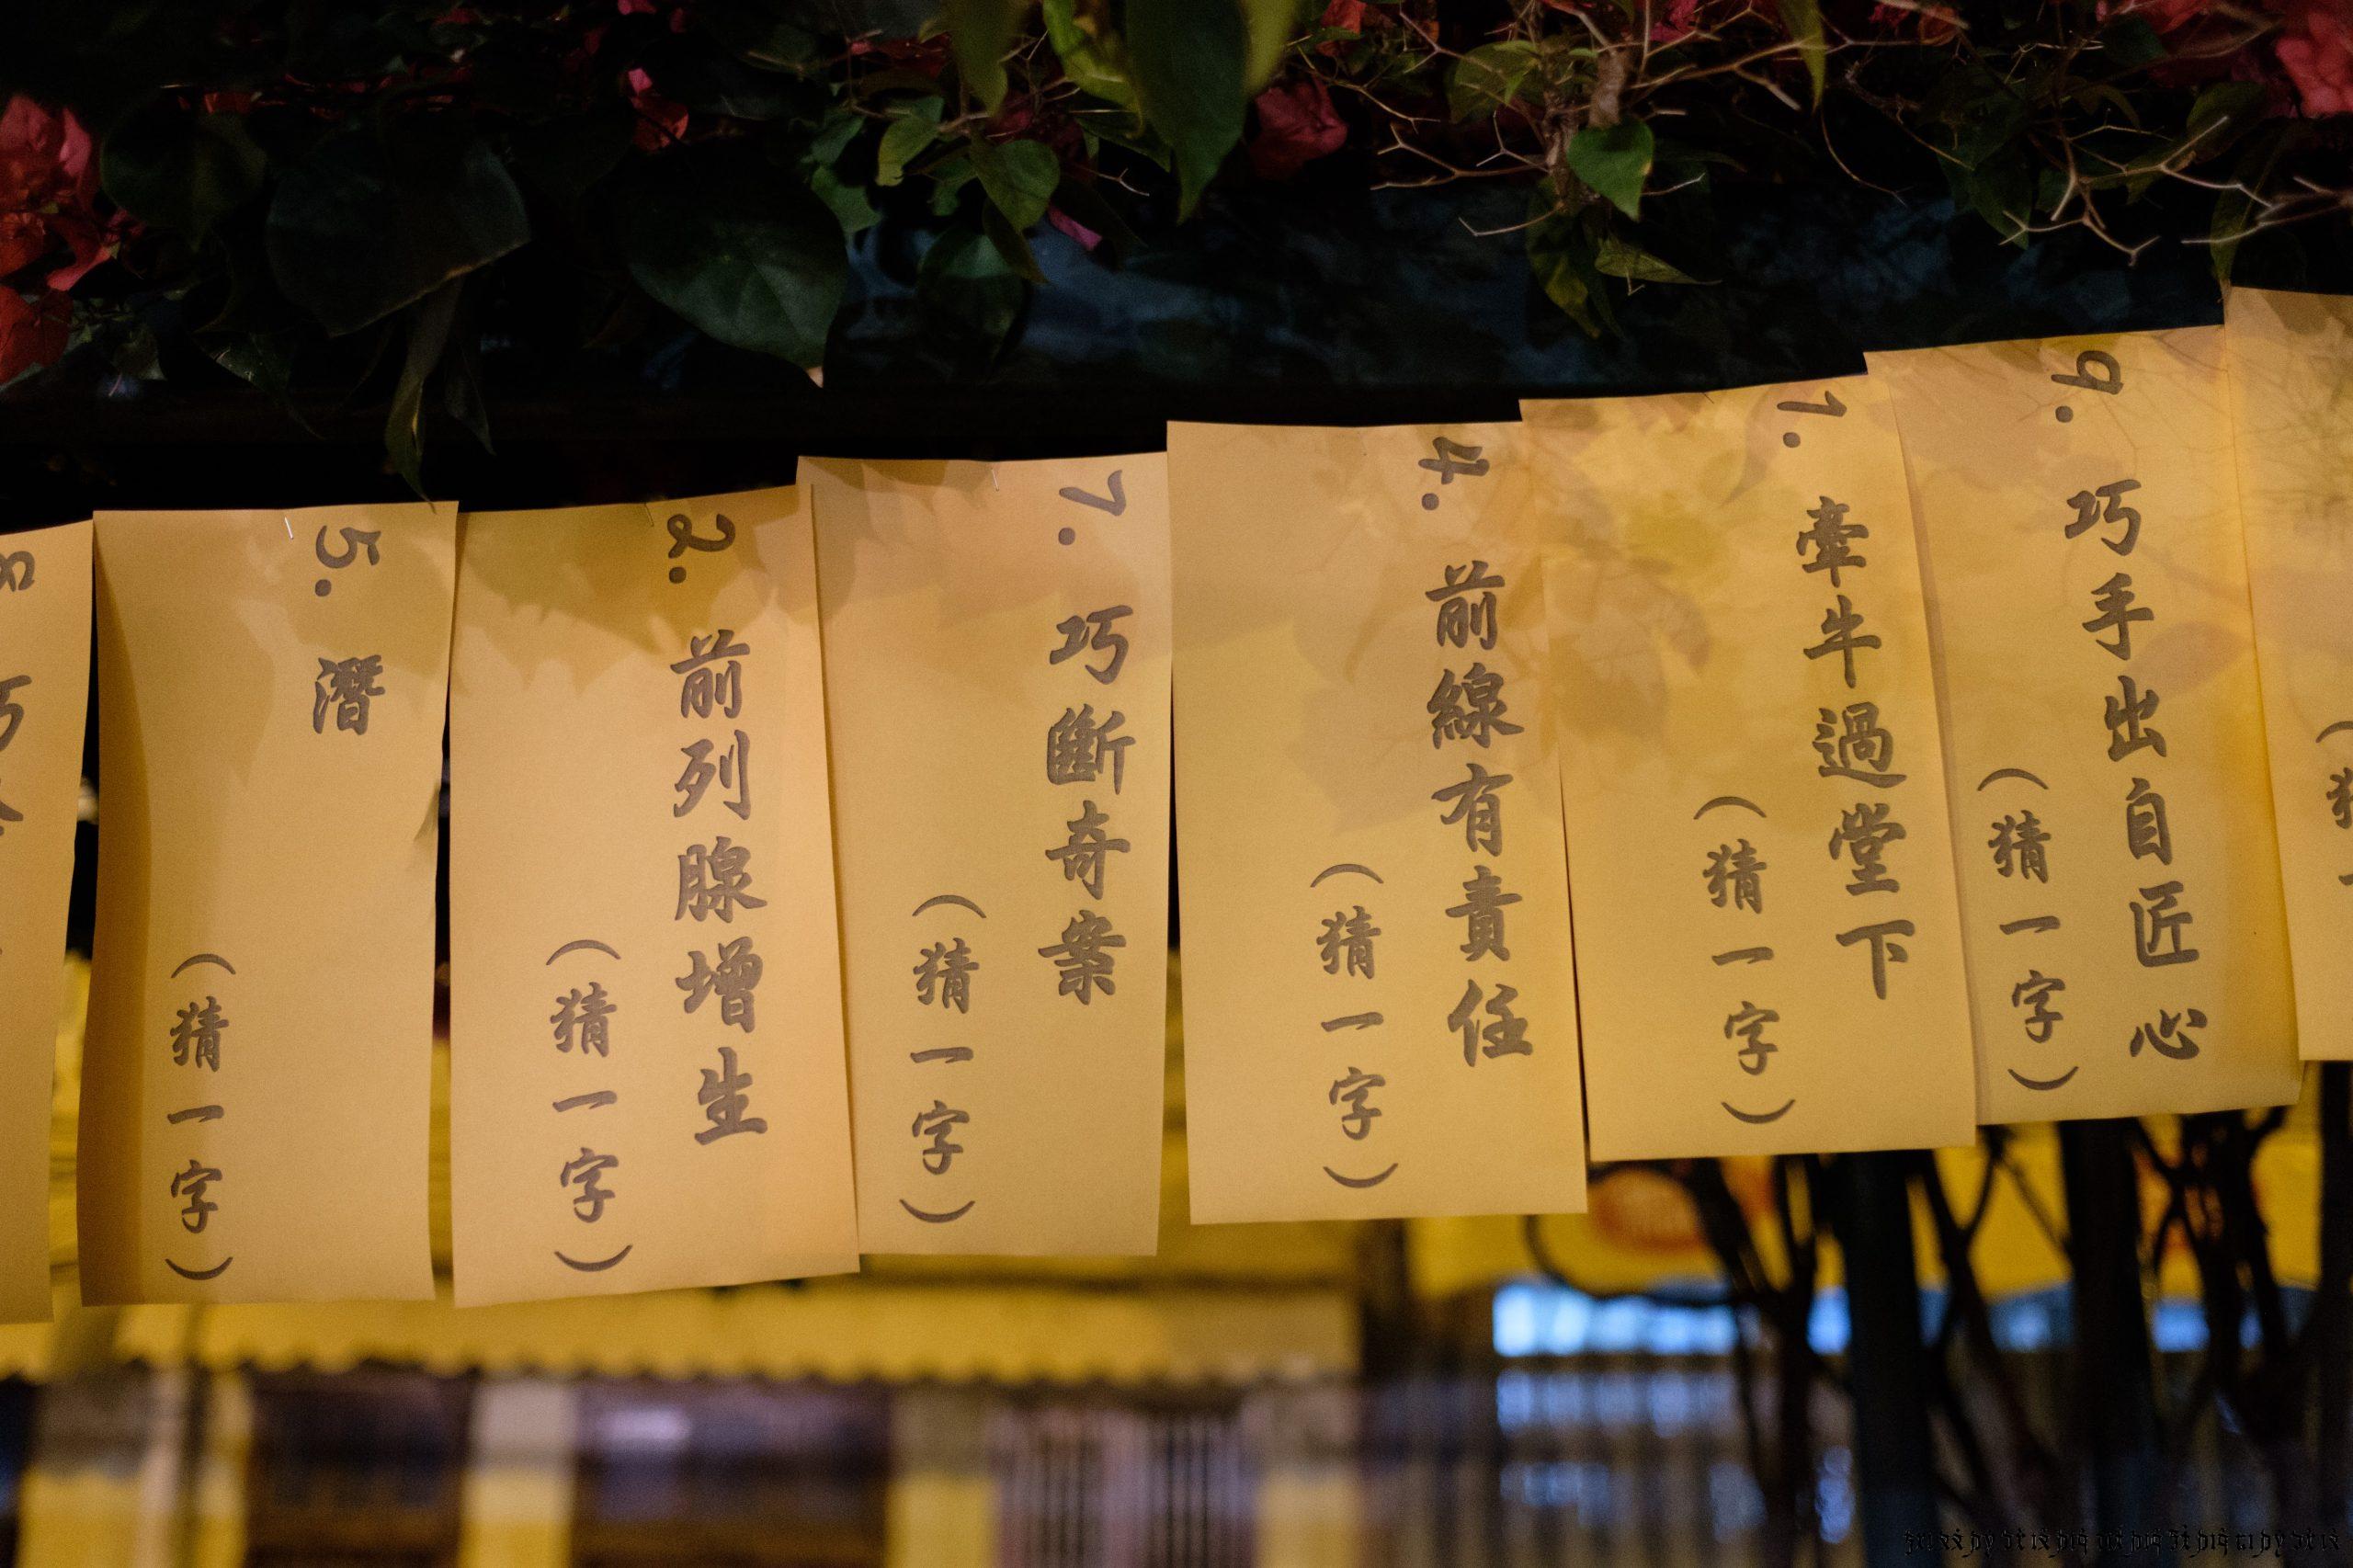 9. 巧手出自匠心
(猜一字)
1. 牽牛過堂下
(猜一字)
4. 前線有責任
(猜一字)
7. 巧斷奇案
(猜一字)
2. 前列腺增生
(猜一字)
5. 潛
(猜一字)
8.